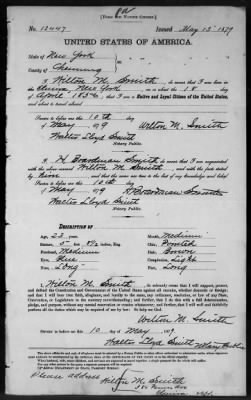 [FORM FOR NATIVE CITIZEN.]
No. 12447 Issued May 15" 1879
UNITED STATES OF AMERICA.
State of New York
County of Chemung
I, Wilton M. Smith, do swear that I was born in
Elmira New York on the 18
April 1856; that I am a Native and Loyal Citizen of the United States,
and about to travel abroad.
Sworn to before me this 10th day
of May 1879 Wilton M. Smith
Walter Lloyd Smith
Notary Public.
I, H Boardman Smith, do swear that I am acquainted
with the above-named Wilton M. Smith and with the facts stated
by him
Sworn to before me this 10th day
of May
Walter Lloyd Smith H Boardman Smith
Notary Public.
DESCRIPTION OF
Age, 23 years Mouth, Medium
Stature, 5 feet inches, Eng. Chin,
Forehead, Medium Hair, Brown
Eyes, Blue Complexion, Light
Nose, Long Face, Long
I, Wilton M. Smith, do solemnly swear that I will support, protect,
and defend the Constitution and Government of the United States against all enemies, whether domestic or foreign;
and that I will bear true faith, allegiance, and loyalty to the same, any ordinance, resolution, or law of any State,
Convention, or Legislature to the contrary notwithstanding; and further, that I do this with a full determination,
pledge, and purpose, without any mental reservation or evasion whatsoever; and further, that I will well and faithfully
perform all the duties which may be required of me by law: So help me God.
Wilton M. Smith
Sworn to before me this 10 day of May 1879
Walter Lloyd Smith Notary Public
Please address Wilton M. Smith
Elmira